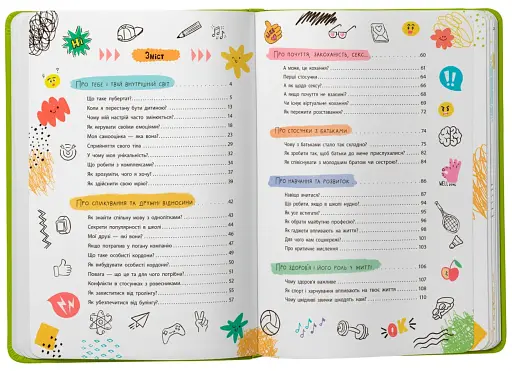 Hi
Зміст
Про тебе і твій внутрішній світ 4
Що таке пубертат? 5
Коли я перестану бути дитиною? 13
Чому мій настрій часто змінюється? 14
Як керувати своїми емоціями? 18
Моя самооцінка — яка вона? 23
Сприйняття свого тіла 29
У чому моя унікальність? 32
Що робити з комплексами? 34
Як зрозуміти, чого я хочу? 37
Як здійснити свою мрію? 39
Про спілкування та дружні відносини 42
Як знайти спільну мову з однолітками? 43
Секрети популярності в школі 44
Мої друзі — які вони? 45
Якщо потрапив у погану компанію 47
Що таке особисті кордони? 49
Як вибудувати особисті кордони? 50
Повага — що це та для чого потрібна? 51
Конфлікти в стосунках з ровесниками 52
Як захиститися від тролінгу? 55
Як убезпечитися від булінгу? 57
Про почуття, закоханість, секс 60
А може, це кохання? 61
Перші стосунки 64
А як щодо сексу? 65
А якщо почуття не взаємні? 68
Чи існує віртуальне кохання? 70
Як пережити розставання? 72
Про стосунки з батьками 74
Чому з батьками стало так складно? 75
Як зробити так, щоб батьки до мене прислухалися? 82
Як співіснувати з молодшим братом чи сестрою? 84
Про навчання та розвиток 86
Навіщо вчитися? 87
Що робити, якщо в школі нудно? 94
Як усе встигати? 95
Як обрати майбутню професію? 96
Як гаджети впливають на життя? 98
Для чого нам соцмережі? 101
Про критичне мислення 103
Про здоров'я і його роль у житті 106
Чому здоров'я важливе 107
Як спорт і харчування впливають на твоє життя 108
Чому шкідливі звички шкодять нам? 110
OK